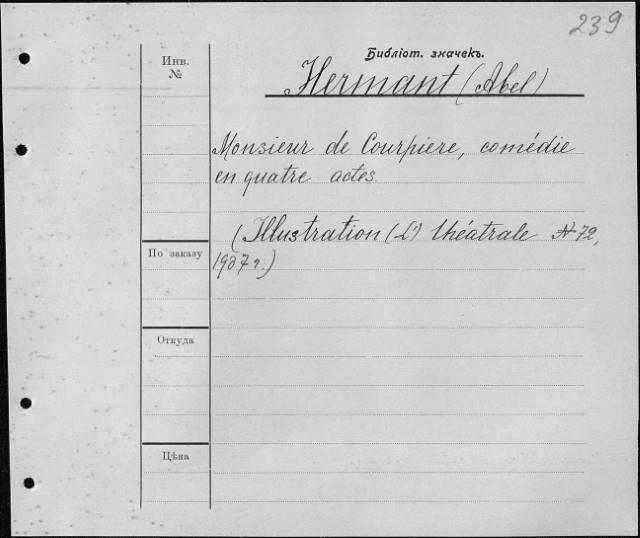 239
Инв.
№
Библіот. значекъ.
Hermant (Abel)
Monsieur de Courpière, comédie
en quatre actes
(Illustration (L') théatrale № 72,
1907 г.)
По заказу
Откуда
Цѣна